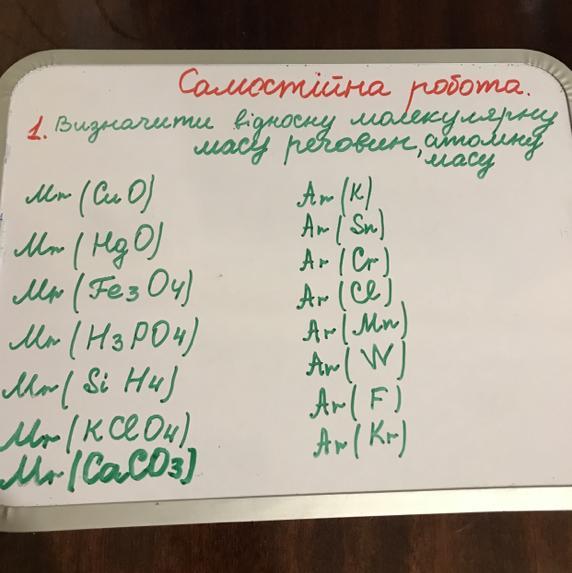 Самостійна робота.
1. Визначити відносну молекулярну
масу речовин, атомну
масу
Mr (CuO)
Mr (HgO)
Mr (Fe3O4)
Mr (H3PO4)
Mr (SiH4)
Mr (KClO4)
Mr (CaCO3)
Ar (K)
Ar (Sn)
Ar (Cr)
Ar (Cl)
Ar (Mn)
Ar (W)
Ar (F)
Ar (Kr)